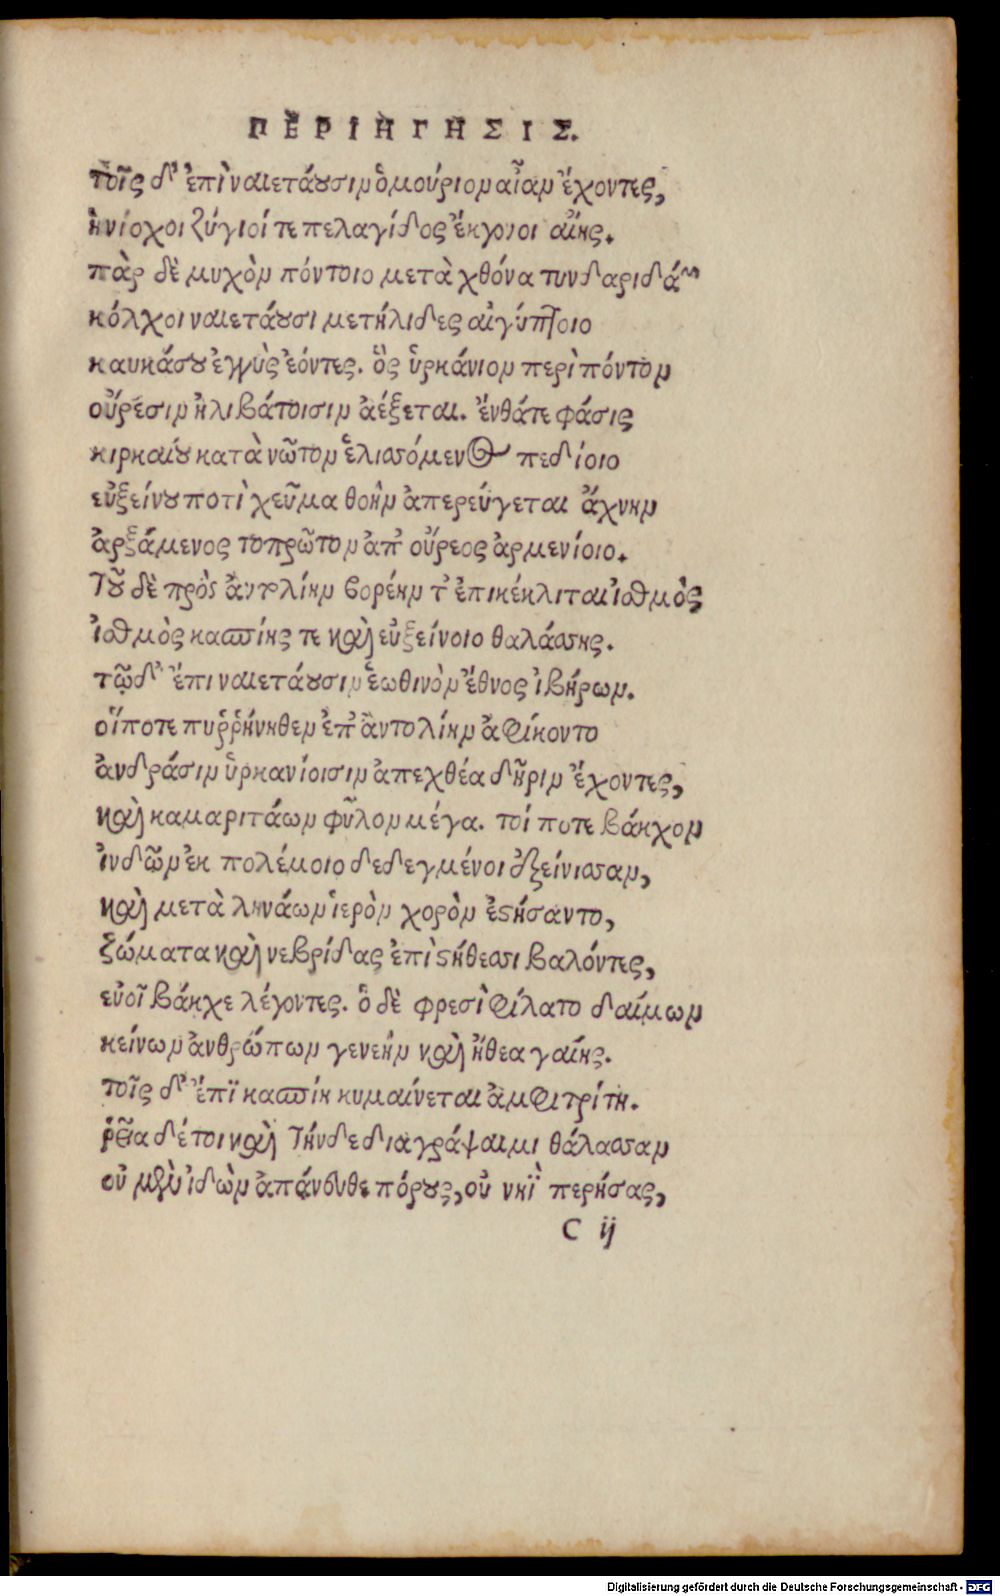 ΠΕΡΙΗΓΗΣΙΣ.
τοῖς δ' ἐπὶ ναιετάουσιν ὁμούριον αἶαν ἔχοντες,
ἡνίοχοι ζύγιοί τε πελαγίδος ἔκγονοι αἴης.
πὰρ δὲ μυχὸν πόντοιο μετὰ χθόνα τυνδαριδάων
κόλχοι ναιετάουσι μετήλιδες αἰγύπτοιο
καυκάσου ἐγγὺς ἐόντες. ὃς ὑρκάνιον περὶ πόντον
οὔρεσιν ἠλιβάτοισιν ἀέξεται. ἔνθάτε φάσις
κιρκαίου κατὰ νῶτον ἑλισσόμενος πεδίοιο
εὐξείνου ποτὶ χεῦμα θοὴν ἀπερεύγεται ἄχνην
ἀρξάμενος τοπρῶτον ἀπ' οὔρεος ἀρμενίοιο.
Τοῦ δὲ πρὸς ἀντολίην βορέην τ' ἐπικέκλιται ἰσθμὸς
ἰσθμὸς κασπίης τε καὶ εὐξείνοιο θαλάσσης.
τῷ δ' ἔπι ναιετάουσιν ἑωθινὸν ἔθνος ἰβήρων.
οἵ ποτε πυῤῥήνηθεν ἐπ' ἀντολίην ἀφίκοντο
ἀνδράσιν ὑρκανίοισιν ἀπεχθέα δῆριν ἔχοντες,
καὶ καμαριτάων φῦλον μέγα. τοί ποτε βάκχον
ἰνδῶν ἐκ πολέμοιο δεδεγμένοι ἐξείνισσαν,
καὶ μετὰ ληνάων ἱερὸν χορὸν ἐστήσαντο,
ζώματα καὶ νεβρίδας ἐπὶ στήθεσσι βαλόντες,
εὐοῖ βάκχε λέγοντες. ὁ δὲ φρεσὶ φίλατο δαίμων
κείνων ἀνθρώπων γενεήν καὶ ἤθεα γαίης.
τοῖς δ' ἔπϊ κασπίη κυμαίνεται ἀμφιτρίτη.
ῥεῖα δέ τοι καὶ Τήνδε διαγράψαιμι θάλασσαν
οὐ μὲν ἰδὼν ἀπάνευθε πόρους, οὐ νηῒ περήσας,
C ij
Digitalisierung gefördert durch die Deutsche Forschungsgemeinschaft - DFG